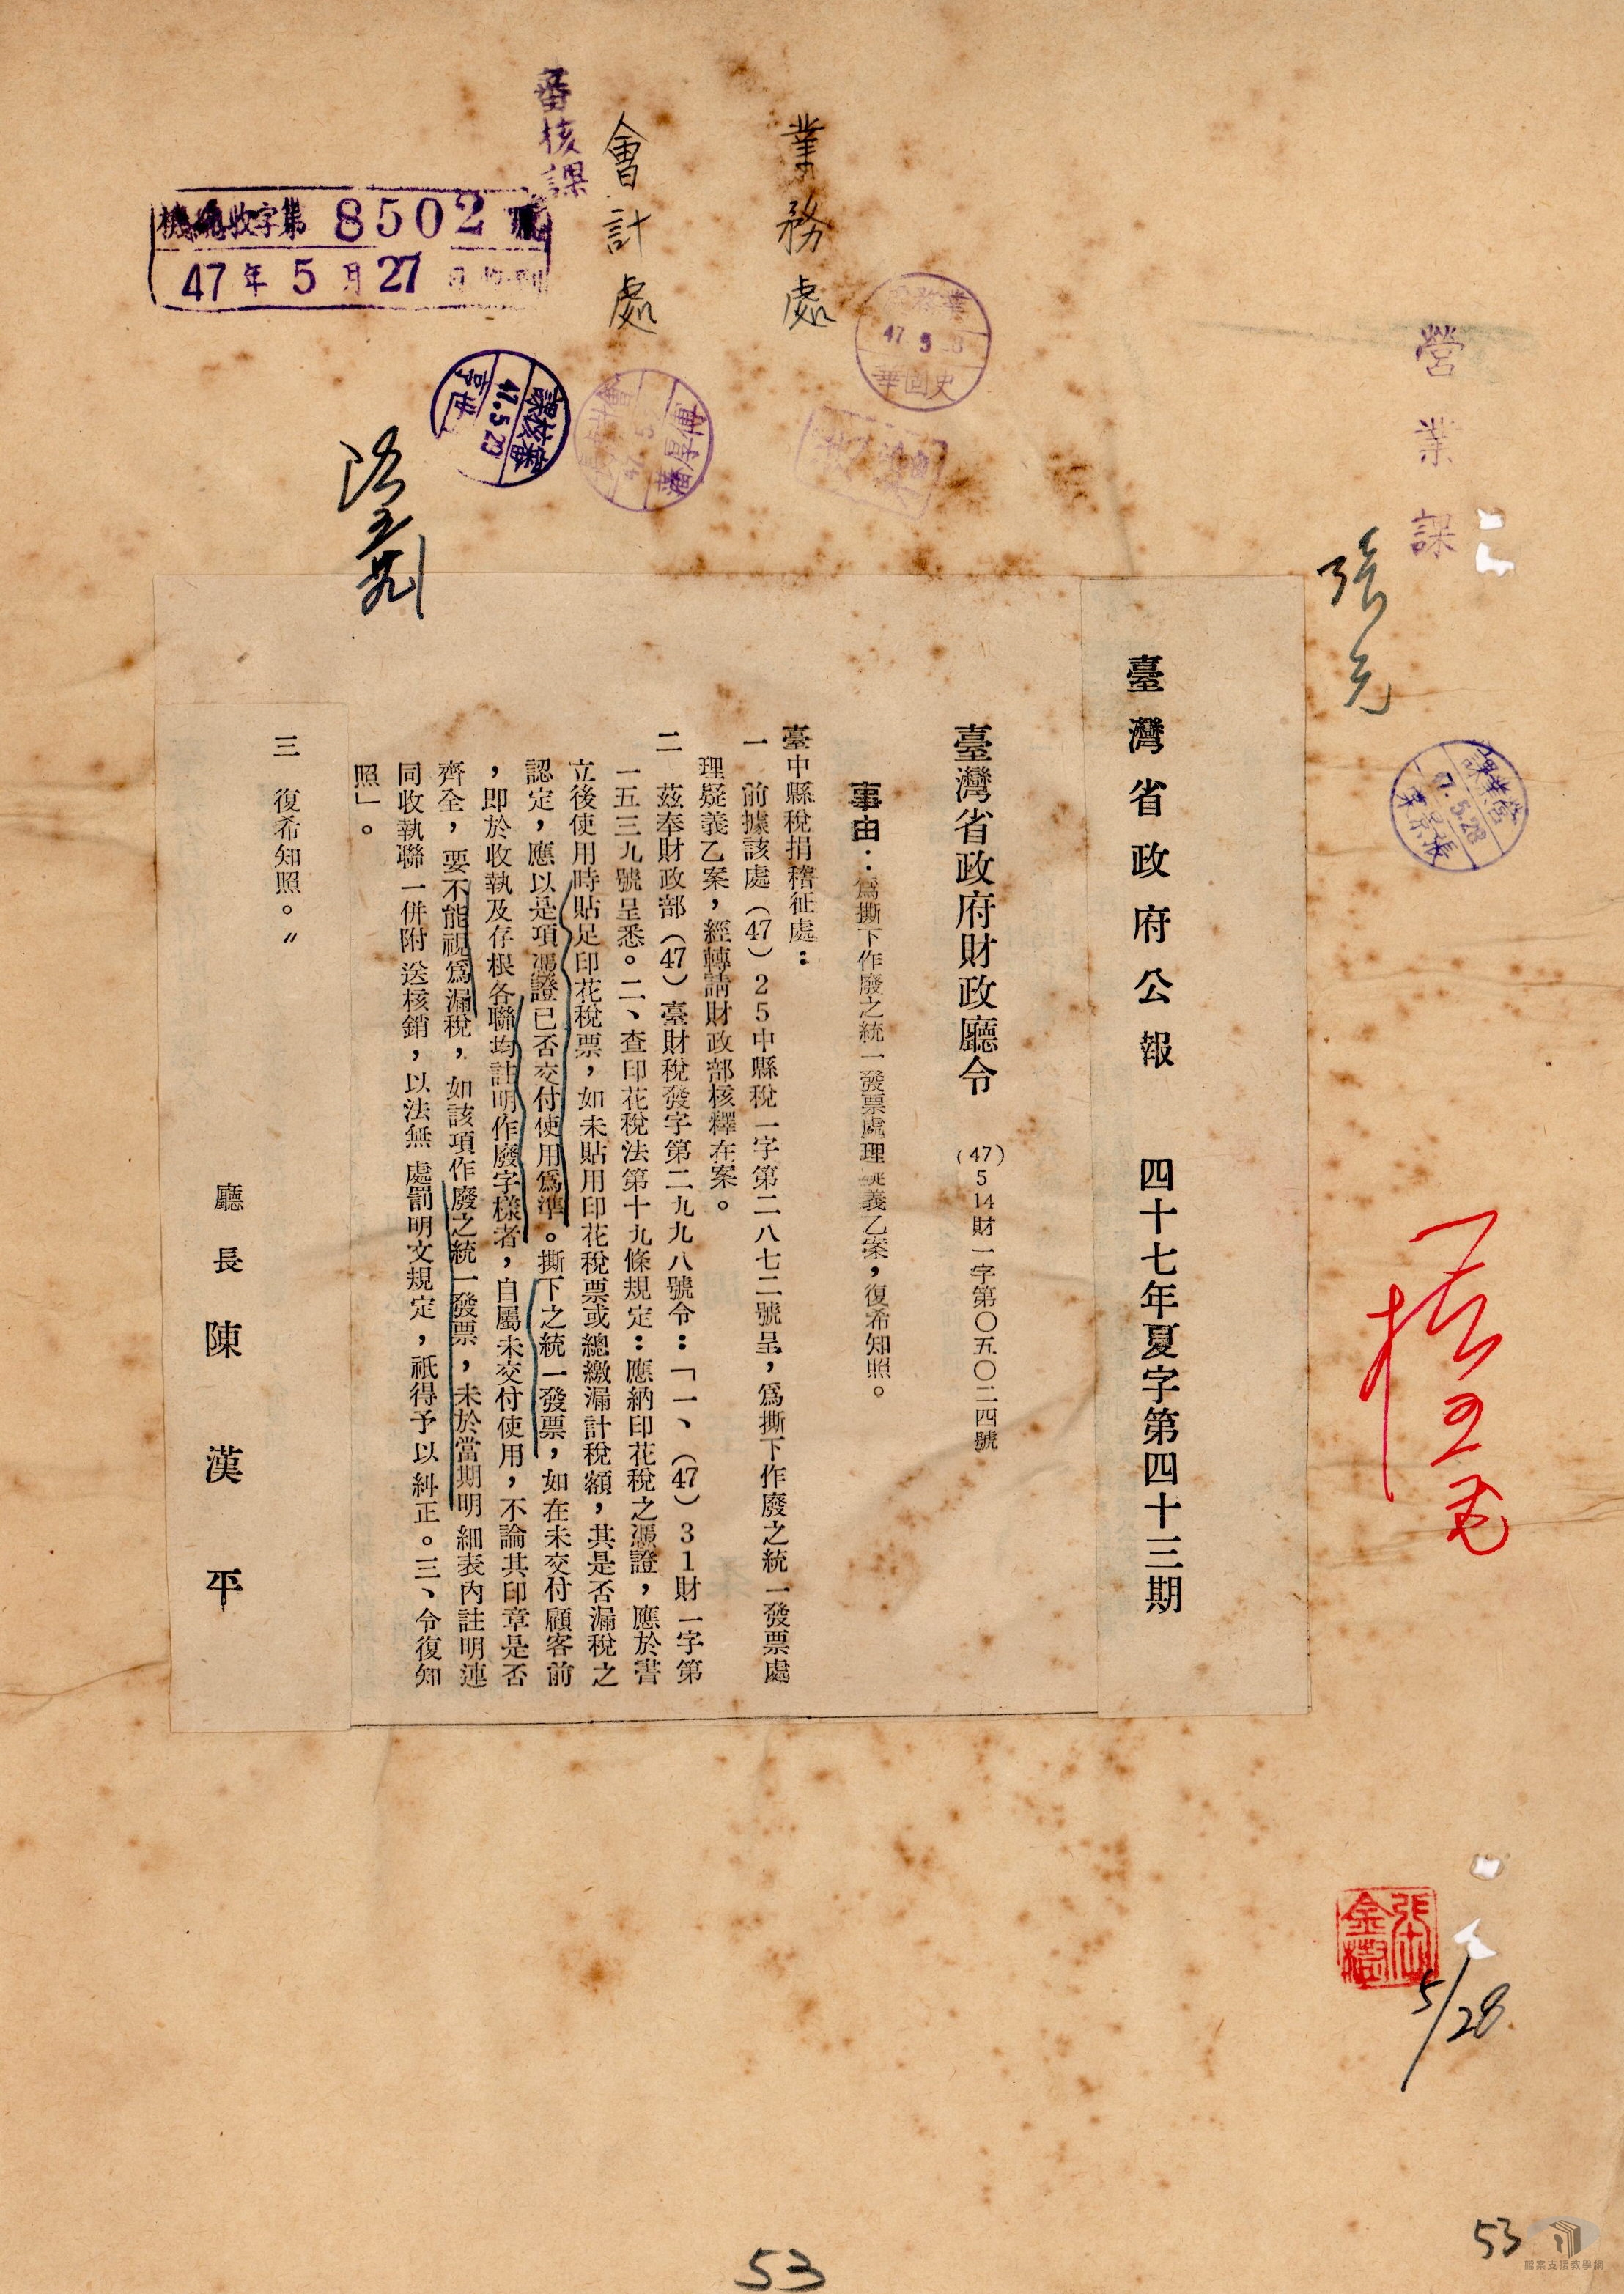 營業課
臺灣省政府公報 四十七年夏字第四十三期
臺灣省政府財政廳令 (47)514財一字第〇五〇二四號
事由:為撕下作廢之統一發票處理疑義乙案,復希知照。
臺中縣稅捐稽征處:
一 前據該處(47)25中縣稅一字第二八七二號呈,為撕下作廢之統一發票處
理疑義乙案,經轉請財政部核釋在案。
二 茲奉財政部(47)臺財稅發字第二九九八號令:「一、(47)31財一字第
一五三九號呈悉。二、查印花稅法第十九條規定:應納印花稅之憑證,應於書
立後使用時貼足印花稅票,如未貼用印花稅票或總繳漏計稅額,其是否漏稅之
認定,應以是項憑證已否交付使用為準。撕下之統一發票,如在未交付顧客前
,即於收執及存根各聯均註明作廢字樣者,自屬未交付使用,不論其印章是否
齊全,要不能視為漏稅,如該項作廢之統一發票,未於當期明細表內註明連
同收執聯一併附送核銷,以法無處罰明文規定,祇得予以糾正。三、令復知
照」。
三 復希知照。〃
廳長 陳漢平
業務處
會計處
審核課
機總收字第 8502 號
47年5月27日收到
業務處
47.5.28
史固華
審核課
47.5.29
營業課
47.5.28
張景業
張金樹
5/28
53
53
檔案支援教學網